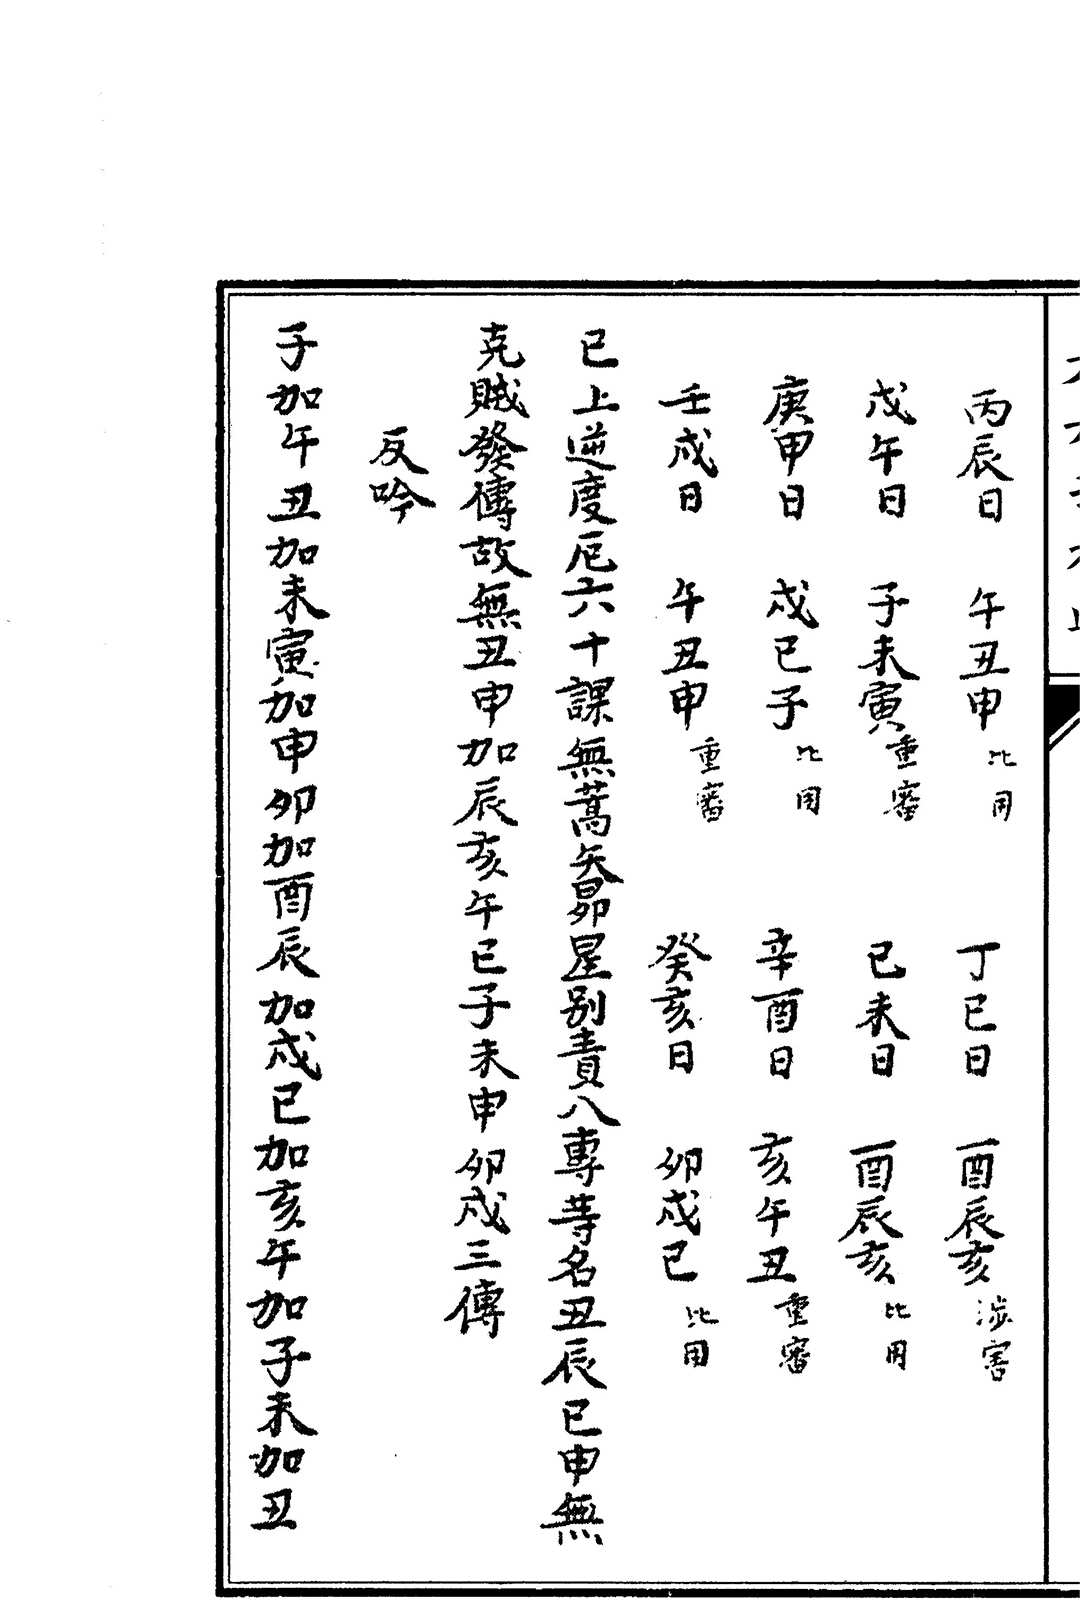 丙辰日　午丑申比用　丁巳日　酉辰亥涉害
戊午日　子未寅重審　己未日　酉辰亥比用
庚申日　戌巳子比用　辛酉日　亥午丑重審
壬戌日　午丑申重審　癸亥日　卯戌巳比用
已上逆度厄六十課無蒿矢昴星别責八專等名丑辰已申無
克賊發傳故無丑申加辰亥午巳子未申卯戌三傳
反吟
子加午丑加未寅加申卯加酉辰加戌巳加亥午加子未加丑